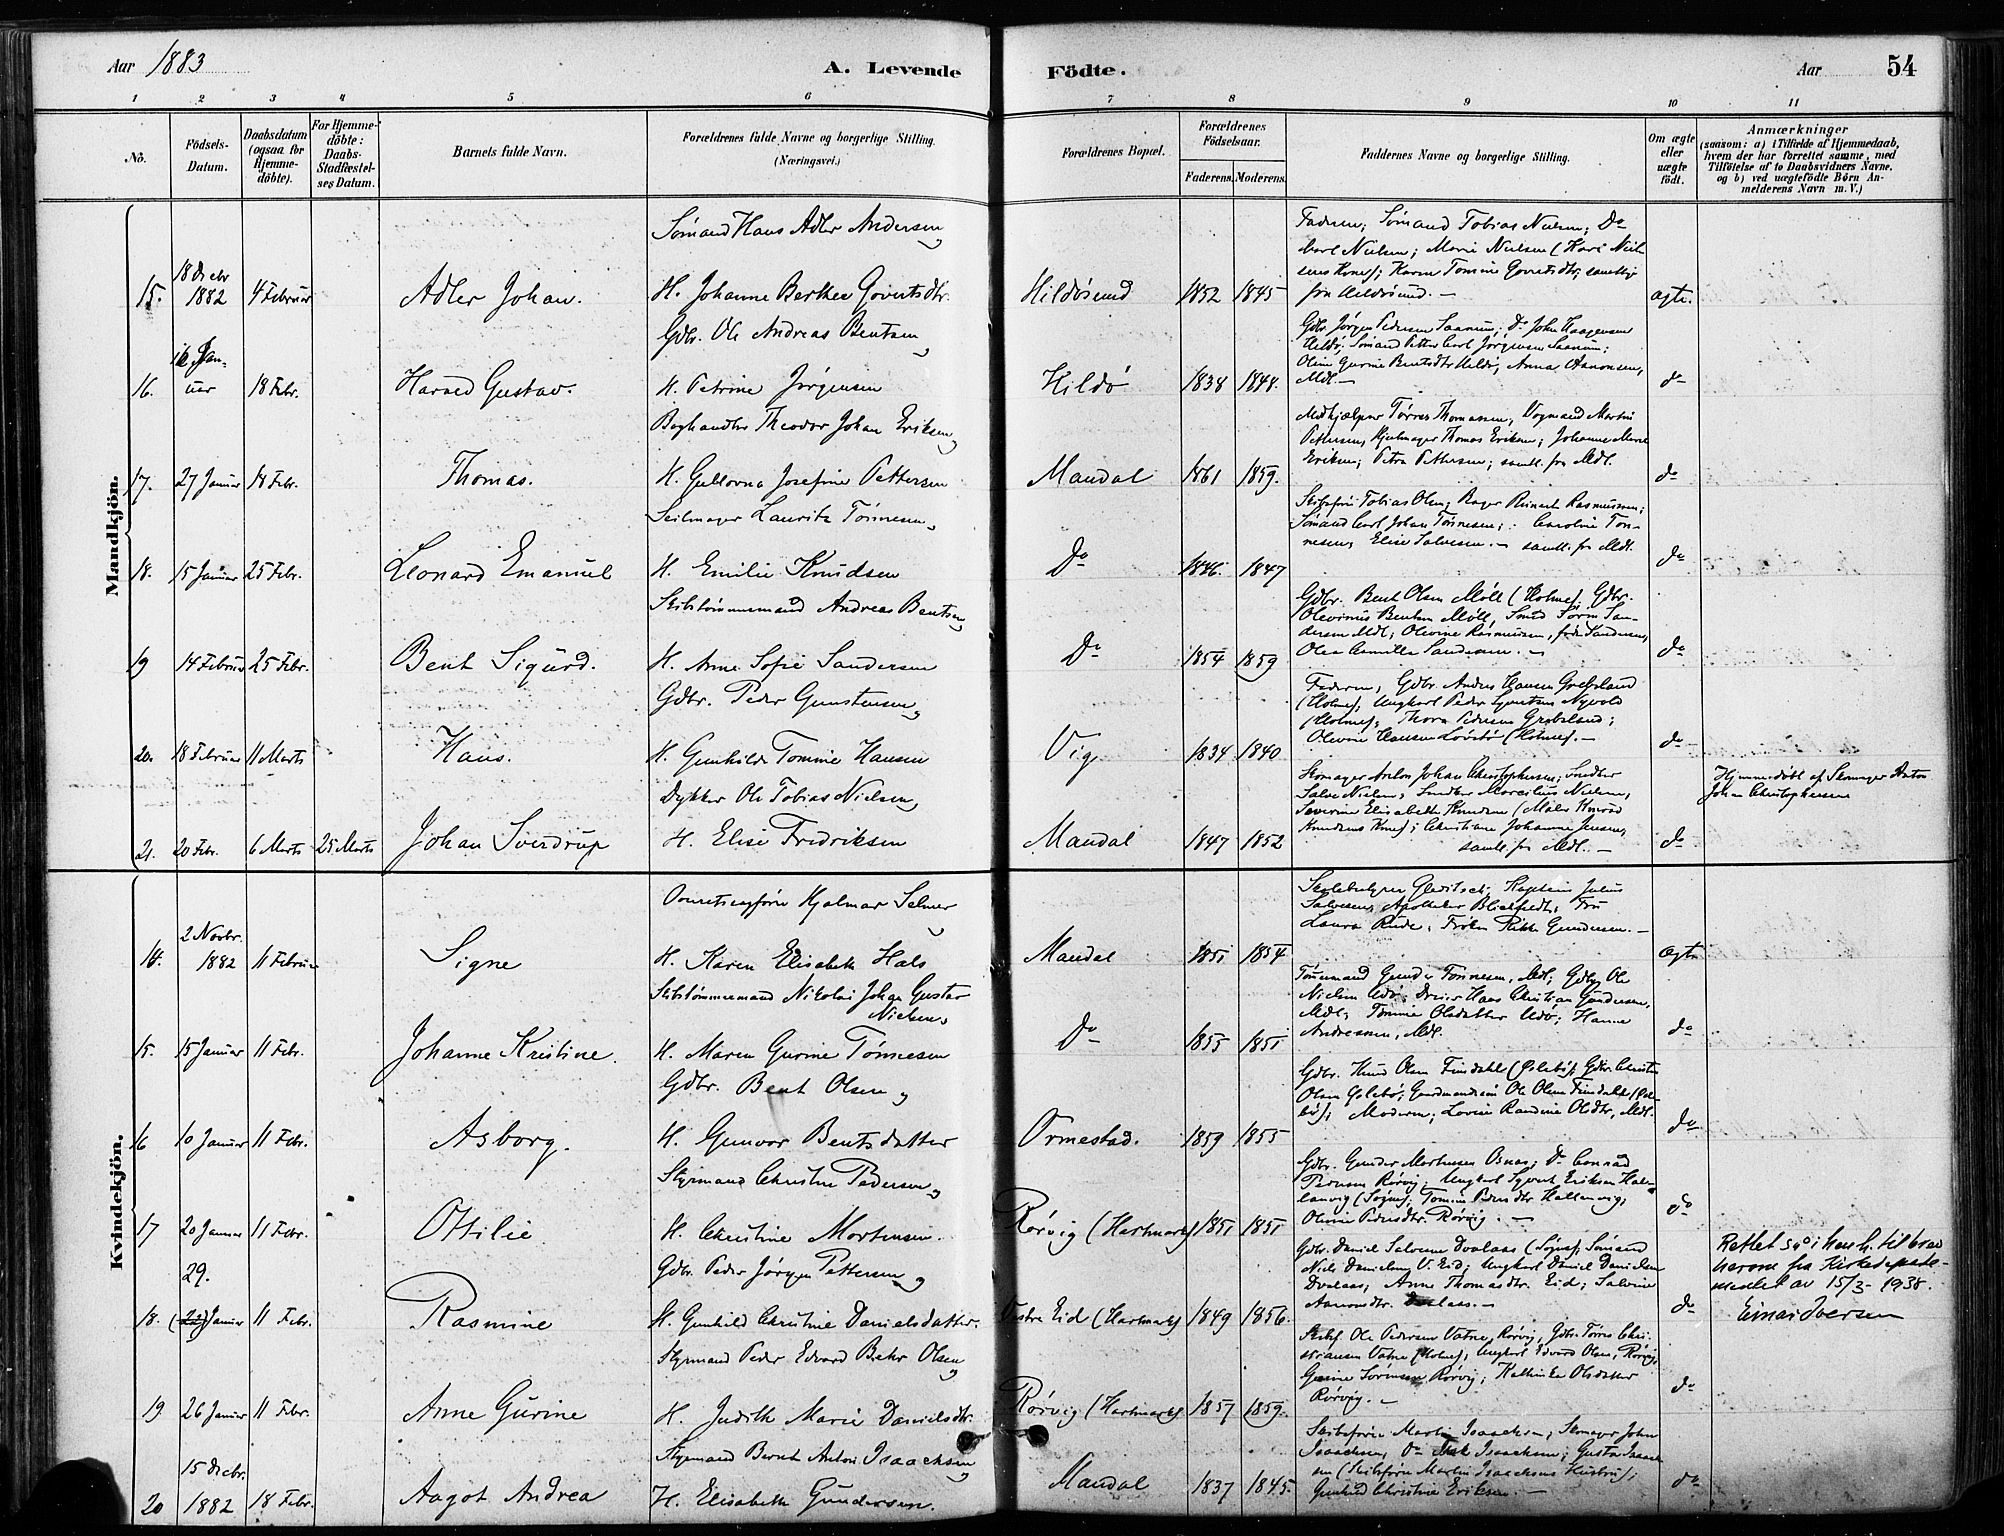 Aar 1883
A. Levende
Födte.
Aar
54
1 2 3 4 5 6 7 8 9 10 11
No.
Födsels-
Datum.
Daabsdatum
(ogsaa for
Hjemme-
döbte).
For Hjemme-
döbte:
Daabs-
Stadfæstel-
ses Datum.
Barnets fulde Navn.
Forældrenes fulde Navne og borgerlige Stilling.
(Næringsvei.)
Forældrenes Bopæl.
Forældrenes
Födselsaar.
Faderens.
Moderens.
Faddernes Navne og borgerlige Stilling.
Om ægte
eller
uægte
födt.
Anmærkninger
(saasom: a) i Tilfælde af Hjemmedaab,
hvem der har forrettet samme, med
Tilföielse af to Daabsvidners Navne,
og b) ved uægtefödte Børn An-
melderens Navn m. V.)
Mandkjön.
15. 18 Decbr 1882 4 Februar Adler Johan.
Sømand Hans Adler Andersen
H. Johanne Berthee Govertsdtr.
Hildøsund 1852 1845
Faderen; Sømand Tobias Nielsen; Do
Carl Nielsen; Marie Nielsen (Karl Niel-
sens Kone); Karen Tomine Govertsdtr, samtlige
fra Hildøsund. —
ægte.
16. Januar 18 Febr. Harald Gustav.
Gdbr. Ole Andreas Bentsen
H. Petrine Jørgensen
Hildø 1838 1848.
Gdbr. Jørgen Pedersen Saanum; Do John Haagensen
Hildø; Sømand Petter Carl Jørgensen Saanum;
Oline Gurine Bentsdtr Hildø; Anna Aanonsen,
Mdl. —
do
17. 27 Januar 18 Febr. Thomas.
Boghandler Theodor Johan Eriksen
H. Gullovna Josefine Pettersen
Mandal 1861 1859.
Medhjælper Tørres Thomassen; Vognmand Martin
Pettersen, Hjulmager Thomas Eriksen; Johanne Marie
Eriksen; Petra Pettersen; samtl. fra Mdl.
do
18. 15 Januar 25 Febr. Leonard Emanuel
Seilmager Lauritz Tönnesen
H. Emilie Knudsen
Do 1846. 1847
Skibsfører Tobias Olsen; Bager Reinert Rasmussen;
Sømand Carl Johan Tönnesen; Caroline Tön-
nesen; Elise Salvesen. — samtl. fr Mdl.
do
19 14 Februar 25 Febr. Bent Sigurd.
Skibstømmermand Andreas Bentsen
H. Anne Sofie Sandersen
Do 1854 1859
Gdbr. Bent Olsen Møll (Holme); Gdbr.
Olevinus Bentsen Møll, Smed Sørn San-
dersen Mdl; Olevine Rasmussen, født Sandersen,
Olea Camilla Sandersen. —
do
20. 18 Februar 11 Marts Hans.
Gdbr. Peder Gunstensen
H. Gunhilde Tomine Hansen
Vig 1834 1840
Faderen; Gdbr. Anders Hansen Grebsland
(Holme); Ungkarl Peder Nyvold
(Holme); Thora Pedersen Grebsland;
Olevine Hansen (Holme). —
do
21. 20 Febr. 6 Marts 25 Marts Johan Sverdrup
Dykker Ole Tobias Nielsen
H. Elise Fredriksen
Mandal 1847 1852
Skomager Anton Johan Christophersen; Snedker
Salve Nielsen; Snedker Marcelius Nielsen;
Severine Elisabeth Knudsen (Maler Konrad
Knudsens Kone); Christiane Johanne Jensen,
samtl. fra Mdl. —
do
Hjemmedøbt af Skomager Anton
Johan Christophersen
Kvindekjön.
14. 2 Novbr. 1882 11 Februar Signe
Overretssagfører Hjalmar Selmer
H. Karen Elisabeth Hals
Mandal 1851 1854
Skolebestyrer Gleditsch; Kaptein Julius
Salvesen; Apotheker Blichfeldt; Fru
Laura Rude; Frøken Rikke Gundersen. —
ægte
15. 15 Januar 11 Febr. Johanne Kristine.
Skibstømmermand Nikolai Johan Gustav
Nielsen
H. Maren Gurine Tönnesen
Do 1855 1851
Tømmermand Gunder Tönnesen, Mdl; Gdbr Ole
Nielsen; Dreier Hans Christian Gundersen,
Mdl; Tomine Olsdatter; Hanne
Andreassen, Mdl.
do
16 10 Januar 11 Febr. Asborg.
Gdbr. Bent Olsen
H. Gunvor Bentsdatter
Ormestad. 1859 1855
Gdbr. Knud Olsen Finsdahl (Øslebø); Gdbr. Christen
Olsen Øslebø; Gaardmandssøn Ole Olsen Finsdahl (Øsle-
bø); Moderen; Lovise Randine Olsdtr, Mdl.
do
17 20 Januar 11 Febr. Ottilie.
Styrmand Christen Pedersen
H. Christine Mortensen.
Rørvig (Hartmark) 1851 1851
Gdbr. Gunder Mortensen Osnæs; Do Conrad
Pedersen Rørvig; Ungkarl Syvert Eriksen Hal-
lanvig (Søgne); Tomine Pedersdtr Hallanvig;
Olevine Pedersdtr. Rørvig. —
do
18. 29. (22) Januar 11 Febr. Rasmine
Gdbr. Peder Jørgen Pettersen
H. Gunhild Christine Danielsdatter.
Vestre Eid (Hartmark) 1849 1856.
Gdbr. Daniel Salvesen Dvalaas (Søgne); Sømand
Niels Danielsen V. Eid; Ungkarl Daniel Danielsen
Dvalaas; Anne Thomasdtr. Eid; Salvine
Aanonsdtr. Dvalaas. —
do
Rettet i henh. til brev
fra Kirkedeparte-
mentet av 15/3 1938.
Einar Iversen
19 26 Januar 11 Febr. Anne Gurine
Styrmand Peder Edvard Behr Olsen
H. Judith Marie Danielsdtr.
Rørvig (Hartmark) 1857 1859.
Skibsf. Ole Pedersen Vatne, Rørvig; Gdbr. Tørres Chri-
stiansen Vatne (Holme); Ungkarl Edvard Olsen, Rørvig;
Gurine Sørensen Rørvig; Kathinka Olsdatter
Rørvig. —
do
20 15 Decbr. 1882 18 Febr. Aagot Andrea
Styrmand Bernt Anton Isaachsen
H. Elisabeth Gundersen.
Mandal 1837 1845.
Skibsfører Martin Isaachsen; Skomager John
Isaachsen, Do Isaachsen; Gusta Isaach-
sen (Skibsfører Martin Isaachsens Hustru);
Gunhild Christine Eriksen. —
do